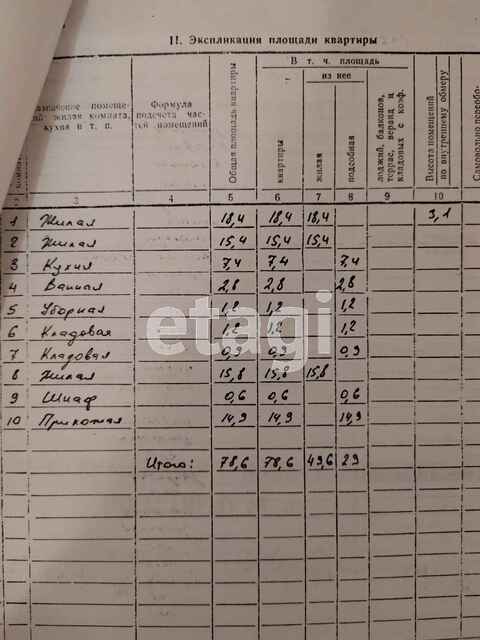 II. Экспликация площади квартиры
В т. ч. площадь
из нее
помеще-
жилая комната,
кухня и т. п.
Формула
подсчета час-
тей помещений
Общая площадь квартиры
квартиры
жилая
подсобная
лоджий, балконов,
террас, веранд и
кладовых с коэф.
Высота помещений
по внутреннему обмеру
3 4 5 6 7 8 9 10
1 Жилая 18,4 18,4 18,4 3,1
2 Жилая 15,4 15,4 15,4
3 Кухня 7,4 7,4 7,4
4 Ванная 2,8 2,8 2,8
5 Уборная 1,2 1,2 1,2
6 Кладовая 1,2 1,2 1,2
7 Кладовая 0,9 0,9 0,9
8 Жилая 15,8 15,8 15,8
9 Шкаф 0,6 0,6 0,6
10 Прихожая 14,9 14,9 14,9
Итого: 78,6 78,6 49,6 29
etagi